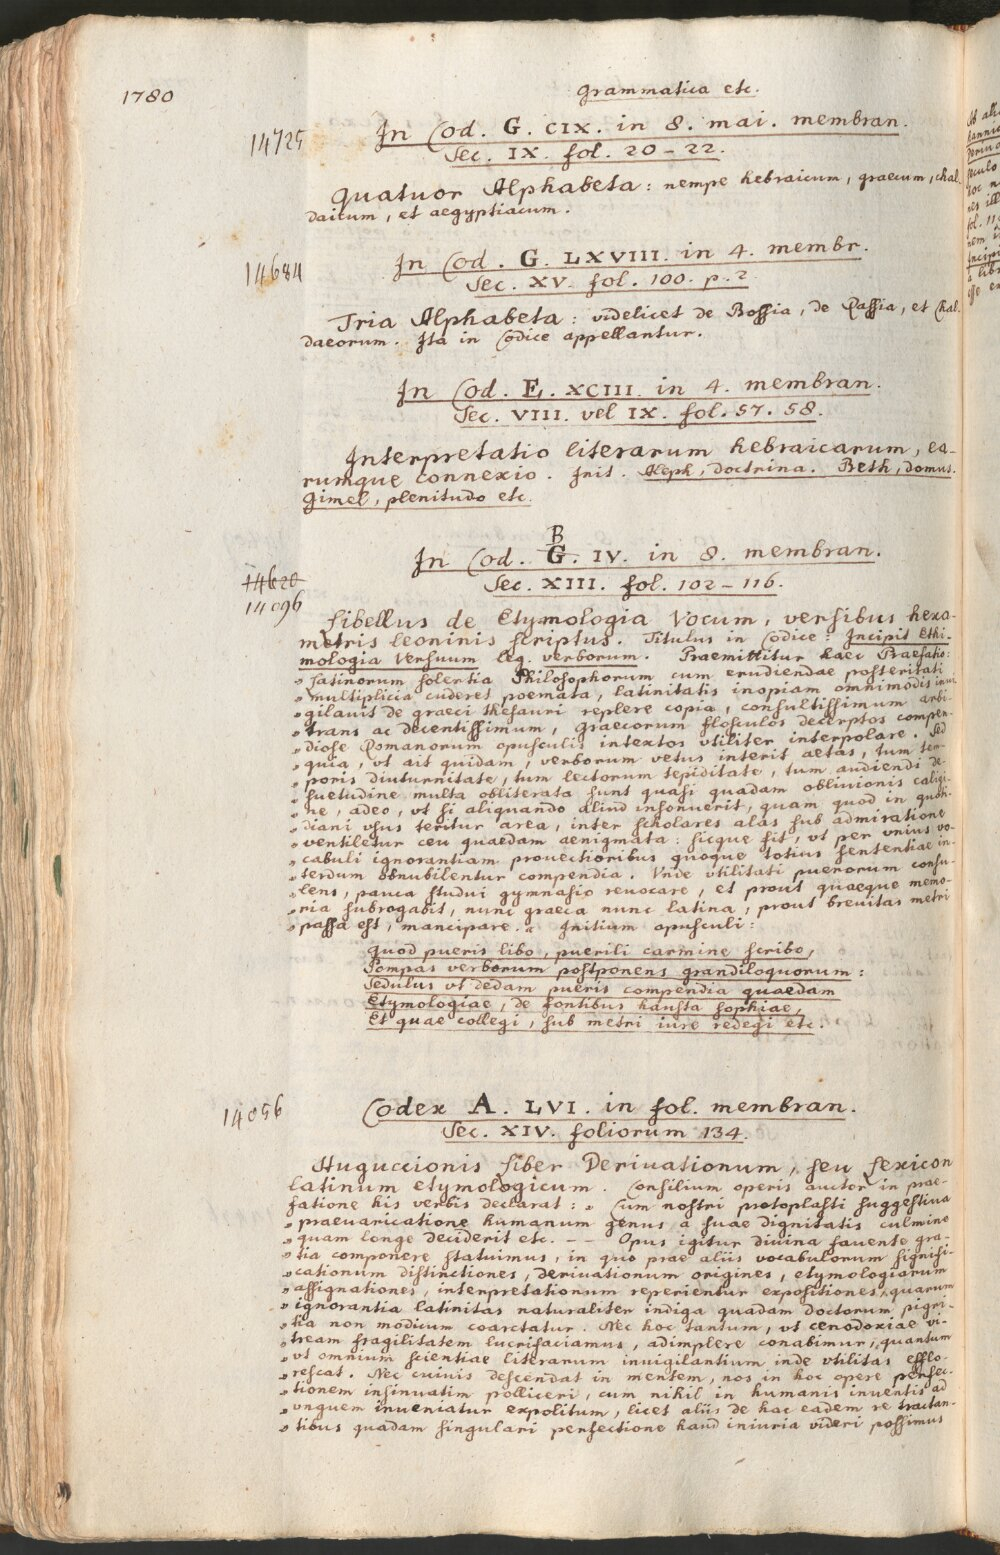 1780
Grammatica etc.
14725
In Cod. G. CIX. in 8. mai. membran.
Sec. IX. fol. 20-22.
Quatuor Alphabeta: nempe hebraicum, graecum, chal-
daicum, et aegyptiacum.
14684
In Cod. G. LXVIII. in 4. membr.
Sec. XV. fol. 100. p. 2
Tria Alphabeta: videlicet de Bossia, de Rassia, et Chal-
daeorum. Ita in Codice appellantur.
In Cod. E. XCIII. in 4. membran.
Sec. VIII. vel IX. fol. 57. 58.
Interpretatio literarum hebraicarum, ea-
rumque connexio. Init. Aleph, doctrina. Beth, domus.
Gimel, plenitudo etc.
B
In Cod. G. IV. in 8. membran.
14620
Sec. XIII. fol. 102-116.
14096
Libellus de Etymologia Vocum, versibus hexa-
metris leoninis scriptus. Titulus in Codice: Incipit Ethi-
mologia Versuum leg. verborum. Praemittitur haec Praefatio:
„Latinorum solertia Philosophorum cum erudiendae posteritati
„multiplicia cuderet poemata, latinitatis inopiam omnimodis inui
„gilauit de graeci thesauri replere copia, consultissimum arbi-
„trans ac decentissimum, Graecorum flosculos decerptos compen-
„diose Romanorum opusculis intextos vtiliter interpolare. Sed
„quia, vt ait quidam, verborum vetus interit aetas, tum tem-
„poris diuturnitate, tum lectorum tepiditate, tum audiendi de-
„suetudine multa obliterata sunt quasi quadam obliuionis caligi-
„ne, adeo, vt si aliquando aliud insonuerit, quam quod in quoti-
„diani vsus teritur area, inter scholares alas sub admiratione
„ventiletur ceu quaedam aenigmata: sicque fit, vt per vnius vo-
„cabuli ignorantiam prouectioribus quoque totius sententiae in-
„terdum obnubilentur compendia. Vnde vtilitati puerorum consu-
„lens, pauca studui gymnasio reuocare, et prout quaeque memo-
„ria subrogabit, nunc graeca nunc latina, prout breuitas metri
„passa est, mancipare.“ Initium opusculi:
Quod pueris libo, puerili carmine scribo,
Pompas verborum postponens grandiloquorum:
Sedulus vt dedam pueris compendia quaedam
Etymologiae, de fontibus hausta sophiae,
Et quae collegi, sub metri iure redegi etc.
14056
Codex A. LVI. in fol. membran.
Sec. XIV. foliorum 134.
Huguccionis Liber Deriuationum, seu Lexicon
latinum etymologicum. Consilium operis auctor in prae-
fatione his verbis declarat: „Cum nostri protoplasti suggestiua
„praeuaricatione humanum genus a suae dignitatis culmine
„quam longe deciderit etc. -- Opus igitur diuina fauente gra-
„tia componere statuimus, in quo prae aliis vocabulorum signifi-
„cationum distinctiones, deriuationum origines, etymologiarum
„assignationes, interpretationum reperientur expositiones, quarum
„ignorantia latinitas naturaliter indiga quadam doctorum pigri-
„tia non modicum coarctatur. Nec hoc tantum, vt cenodoxiae vi-
„tream fragilitatem lucrifaciamus, adimplere conabimur, quantum
„vt omnium scientiae literarum inuigilantium inde vtilitas efflo-
„rescat. Nec cuiuis descendat in mentem, nos in hoc opere perfec-
„tionem insinuatim polliceri, cum nihil in humanis inuentis ad
„vnguem inueniatur expolitum, licet aliis de hac eadem re tractan-
„tibus quadam singulari perfectione haud iniuria videri possimus